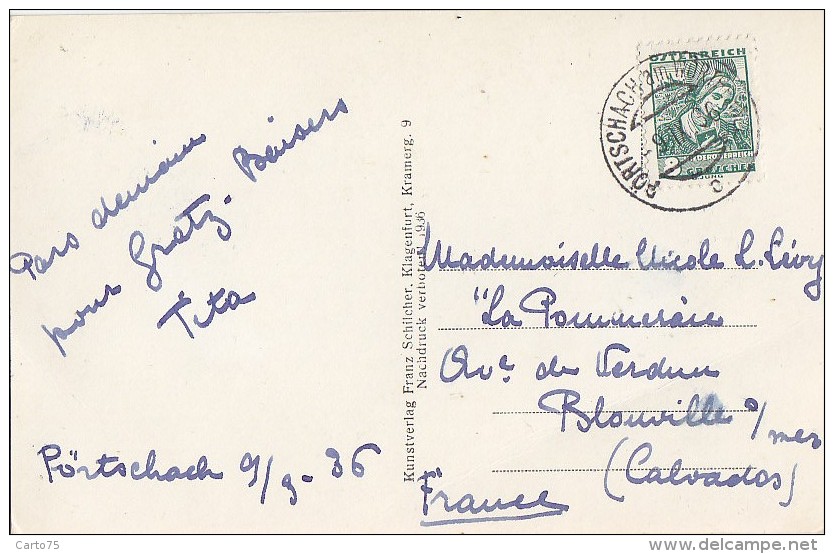 Pars demain
pour Gratz. Baisers
Tita
Pörtschach 9/9-36
Kunstverlag Franz Schilcher, Klagenfurt, Kramerg. 9
Nachdruck verboten! 1936
ÖSTERREICH
PÖRTSCHACH am WÖRTHER
GROSCHEN
Mademoiselle Nicole L. Lévy
"La Pommeraie
Ave de Verdun
Blonville s/mer
(Calvados)
France
Carto75
www.delcampe.net